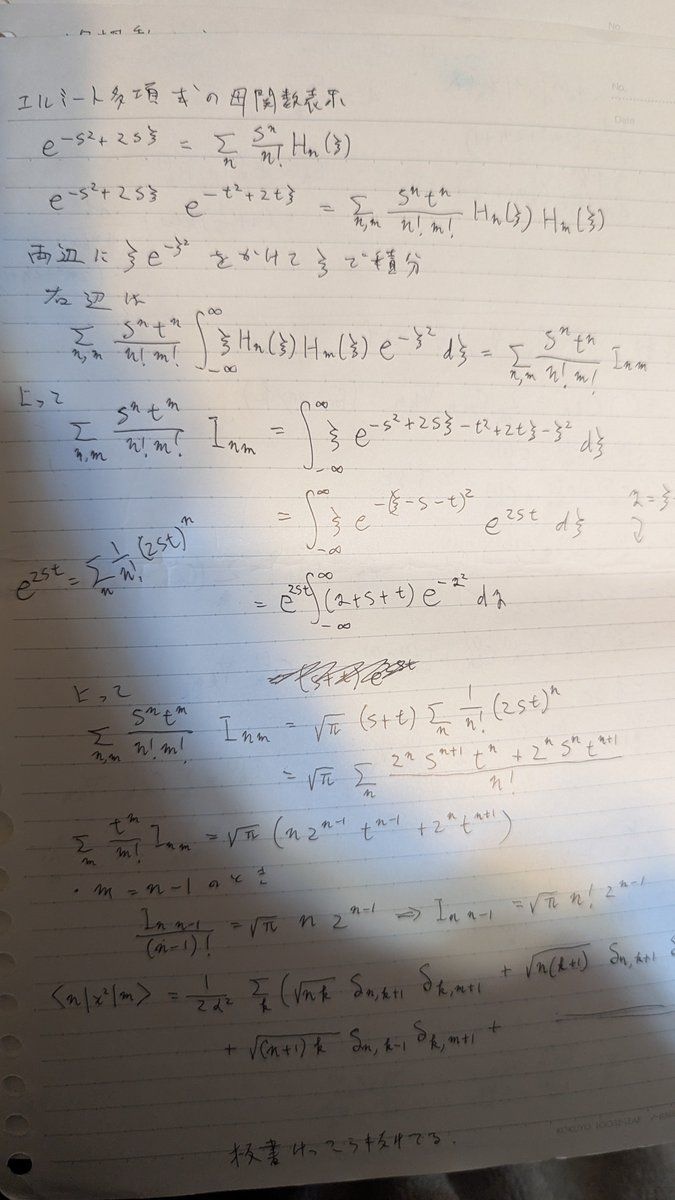 エルミート多項式の母関数表示
e^{-s²+2sξ} = Σ_n s^n/n! H_n(ξ)
e^{-s²+2sξ} e^{-t²+2tξ} = Σ_{n,m} s^n t^n/(n! m!) H_n(ξ) H_m(ξ)
両辺に ξe^{-ξ²} をかけて ξ で積分
右辺は
Σ_{n,m} s^n t^n/(n! m!) ∫_{-∞}^{∞} ξ H_n(ξ) H_m(ξ) e^{-ξ²} dξ = Σ_{n,m} s^n t^n/(n! m!) I_{nm}
よって
Σ_{n,m} s^n t^m/(n! m!) I_{nm} = ∫_{-∞}^{∞} ξ e^{-s²+2sξ-t²+2tξ-ξ²} dξ
= ∫_{-∞}^{∞} ξ e^{-(ξ-s-t)²} e^{2st} dξ
z=ξ-
e^{2st} = Σ_n 1/n! (2st)^n
= e^{2st} ∫_{-∞}^{∞} (z+s+t) e^{-z²} dz
よって
Σ_{n,m} s^n t^m/(n! m!) I_{nm} = √π (s+t) Σ_n 1/n! (2st)^n
= √π Σ_n (2^n s^{n+1} t^n + 2^n s^n t^{n+1})/n!
Σ_m t^m/m! I_{nm} = √π (n 2^{n-1} t^{n-1} + 2^n t^{n+1})
・m = n-1 のとき
I_{n n-1}/(n-1)! = √π n 2^{n-1} ⇒ I_{n n-1} = √π n! 2^{n-1}
⟨n|x²|m⟩ = 1/(2α²) Σ_k (√(nk) δ_{n,k+1} δ_{k,m+1} + √(n(k+1)) δ_{n,k+1} δ
+ √((n+1)k) δ_{n,k-1} δ_{k,m+1} +
板書けっこう抜けてる.
KOKUYO LOOSE-LEAF
No.
No.
Date